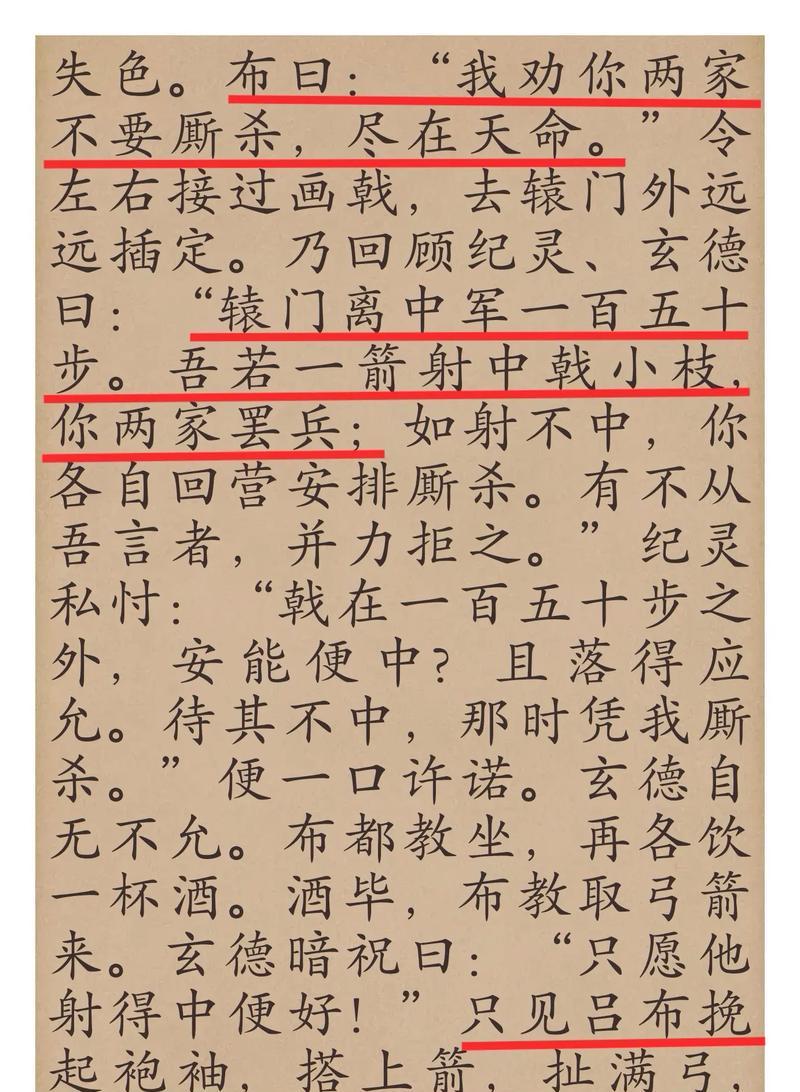 失色。布曰：“我劝你两家
不要厮杀，尽在天命。”令
左右接过画戟，去辕门外远
远插定。乃回顾纪灵、玄德
曰：“辕门离中军一百五十
步。吾若一箭射中戟小枝，
你两家罢兵；如射不中，你
各自回营安排厮杀。有不从
吾言者，并力拒之。”纪灵
私忖：“戟在一百五十步之
外，安能便中？且落得应
允。待其不中，那时凭我厮
杀。”便一口许诺。玄德自
无不允。布都教坐，再各饮
一杯酒。酒毕，布教取弓箭
来。玄德暗祝曰：“只愿他
射得中便好！”只见吕布挽
起袍袖，搭上箭，扯满弓，